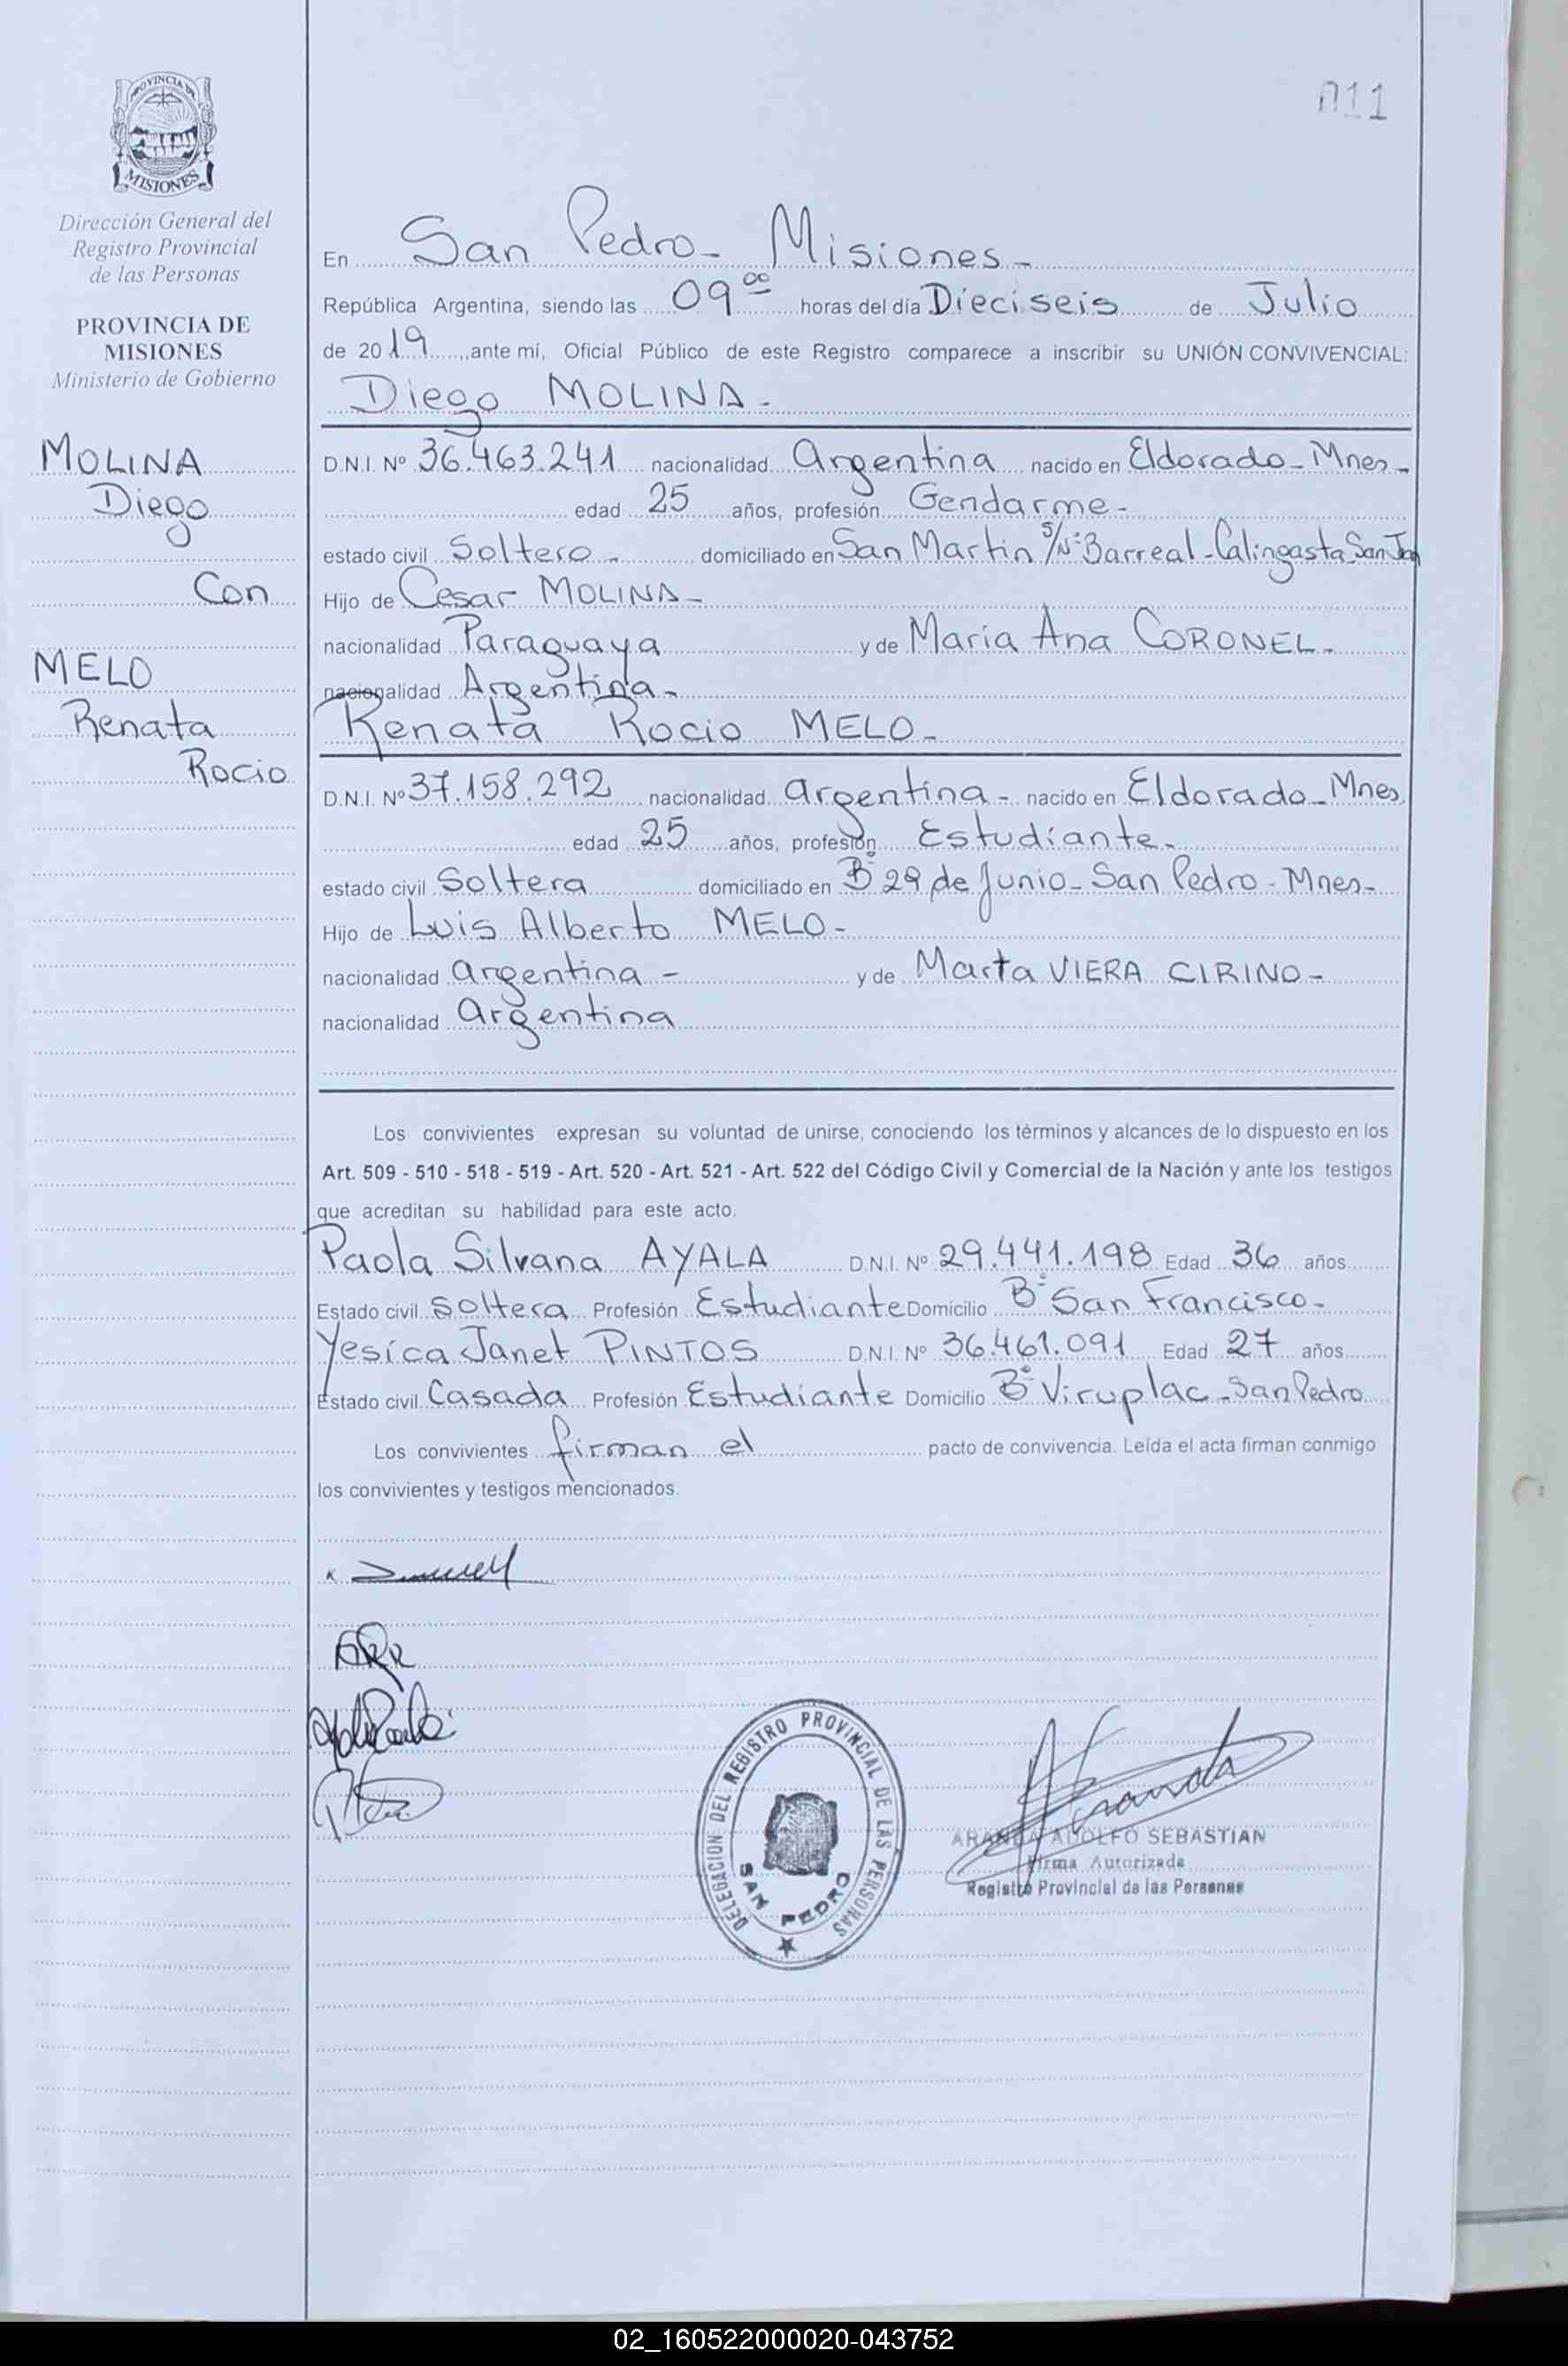 011
PROVINCIA DE
MISIONES
Dirección General del
Registro Provincial
de las Personas
PROVINCIA DE
MISIONES
Ministerio de Gobierno
MOLINA
Diego
Con
MELO
Renata
Rocio
En San Pedro - Misiones -
República Argentina, siendo las 09 00 horas del día Dieciseis de Julio
de 2019, ante mí, Oficial Público de este Registro comparece a inscribir su UNIÓN CONVIVENCIAL:
Diego MOLINA -
D.N.I. Nº 36.463.241 nacionalidad Argentina nacido en Eldorado - Mnes -
edad 25 años, profesión Gendarme -
estado civil Soltero - domiciliado en San Martin S/Nº Barreal - Calingasta San Jn
Hijo de Cesar MOLINA -
nacionalidad Paraguaya y de Maria Ana CORONEL -
nacionalidad Argentina -
Renata Rocio MELO -
D.N.I. Nº 37.158.292 nacionalidad argentina - nacido en Eldorado - Mnes
edad 25 años, profesión Estudiante -
estado civil Soltera domiciliado en Bº 29 de Junio - San Pedro - Mnes -
Hijo de Luis Alberto MELO -
nacionalidad argentina - y de Marta VIERA CIRINO -
nacionalidad argentina
Los convivientes expresan su voluntad de unirse, conociendo los términos y alcances de lo dispuesto en los
Art. 509 - 510 - 518 - 519 - Art. 520 - Art. 521 - Art. 522 del Código Civil y Comercial de la Nación y ante los testigos
que acreditan su habilidad para este acto.
Paola Silvana AYALA D.N.I. Nº 29.441.198 Edad 36 años
Estado civil Soltera Profesión Estudiante Domicilio Bº San Francisco -
Yesica Janet PINTOS D.N.I. Nº 36.461.091 Edad 27 años
Estado civil Casada Profesión Estudiante Domicilio Bº Viruplac - San Pedro
Los convivientes firman el pacto de convivencia. Leída el acta firman conmigo
los convivientes y testigos mencionados.
DELEGACION DEL REGISTRO PROVINCIAL DE LAS PERSONAS
SAN PEDRO
ARANDA ADOLFO SEBASTIAN
Firma Autorizada
Registro Provincial de las Personas
02_160522000020-043752